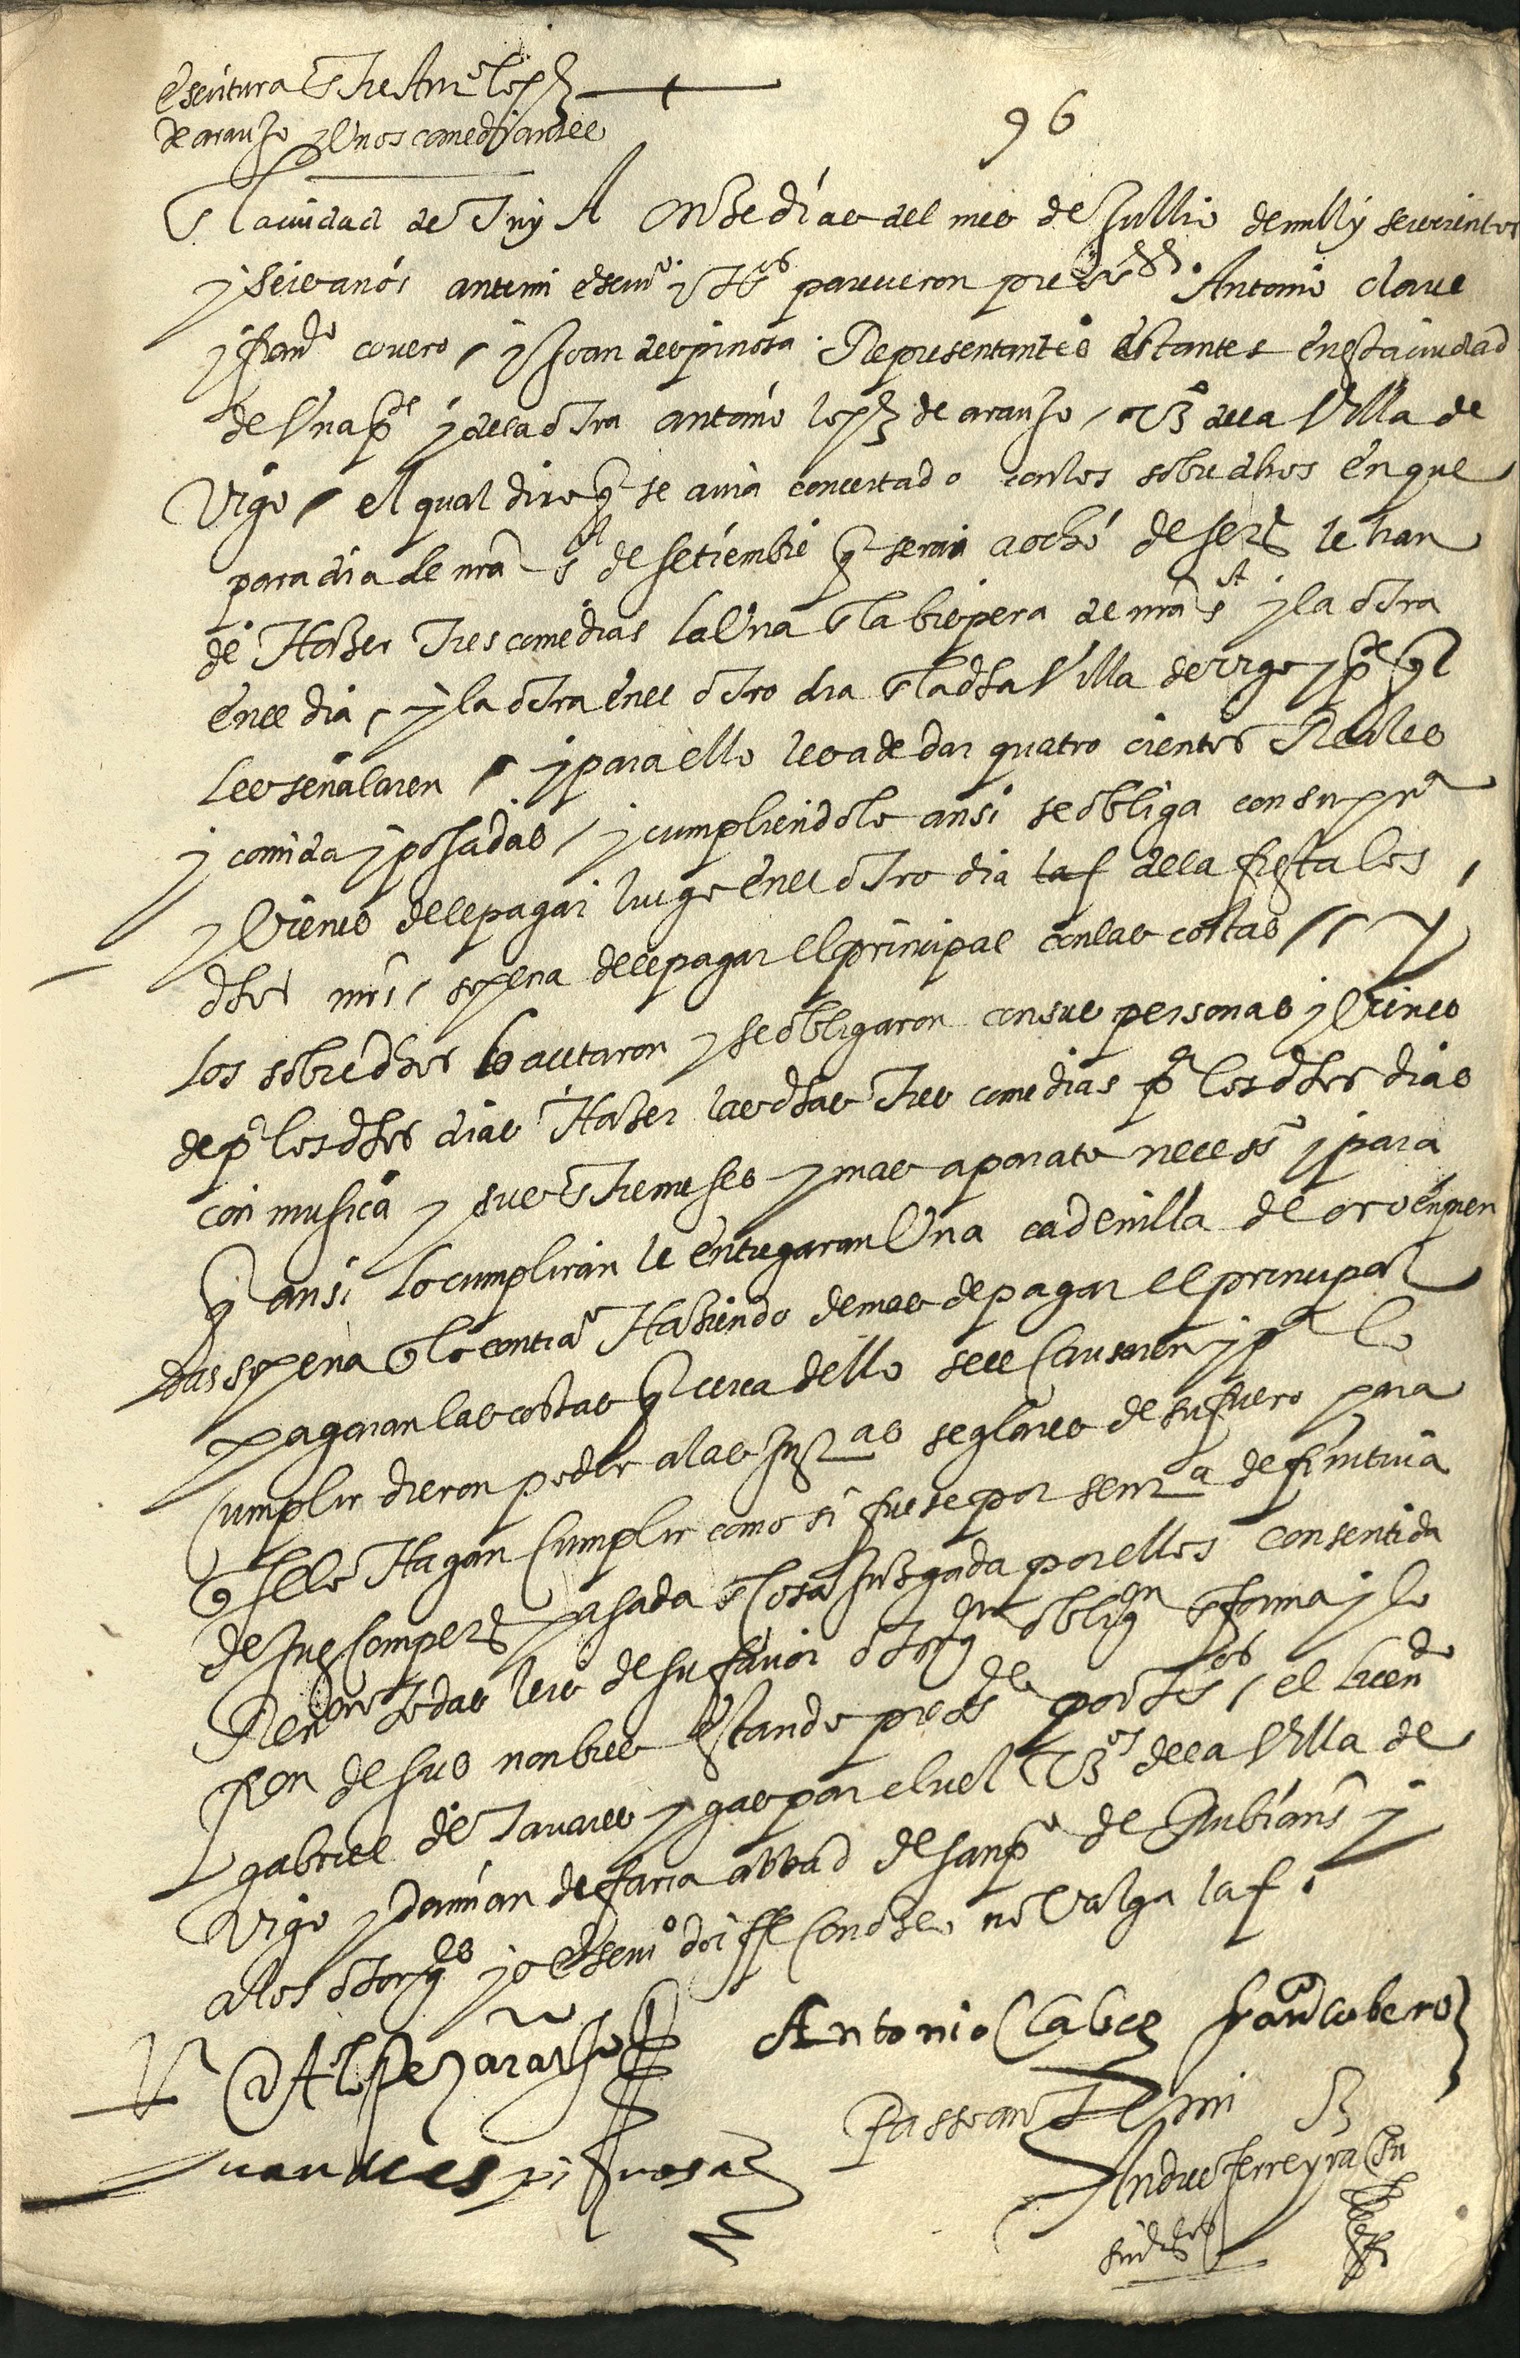 escritura entre Antº lopz
de araujo y Unos comediantes
96
En la ciudad de Tuy A onze días del mes de Jullio de mill y seiscientos
y seis años ante mi escriuº y tsº parecieron presentes Antonio claue
y franco covero, y Joan de espinosa Representantes estantes en esta ciudad
de Una pte y de la otra antonio lopz de araujo, vzº de la Villa de
Vigo, el qual dixo q se auia concertado con los sobredhos en que
para dia de nra Sra de setiembre q seran a ocho de setº le han
de Hazer Tres comedias la Una en la biespera de nra sra y la otra
en el dia, y la otra en el otro dia en la dha Villa de vigo y pte q
les señalaren, y para ello les a de dar quatro cientos Reales
y comida y posadas, y cumpliendolo ansi se obliga con su prª
y Vienes de les pagar luego en el otro dia laf de la fiesta los
dhos mrs, so pena de les pagar el principal con las costas, y
los sobredhos lo acetaron y se obligaron con sus personas y Vienes
de pª los dhos dias Hazer las dhas tres comedias pª los dhos dias
con musica y sus entremeses y mas aparato necessº y para
q ansi lo cumpliran le entregaran Una cadenilla de oro en pren
das so pena q lo contrº Haziendo demas de pagar el principal
pagaran las costas q cerca dello se le Causaren y pª lo
Cumplir dieron poder a las Juztas seglares de su fuero para
q se lo Hagan Cumplir como si fuese por sentª definitiua
de Juez Competº pasada en Cosa Juzgada por ellos consentida
Renunron todas leis de su fauor otorgn obligon en forma y lo
fron de sus nonbres estando presdes por tsos, el licendo
gabriel de Tauares y gaspar cluel vzos de la Villa de
Vigo y Damian de faria abbad de san pº de Gubians y
a los otorgtes yo escriuº doi ffe Conozco no Valga laf.
Antº Lopez araujo Antonio Clabes franco cobero
Juan de espinosa
Passo ante mi
Andres ferreyra
sin dros